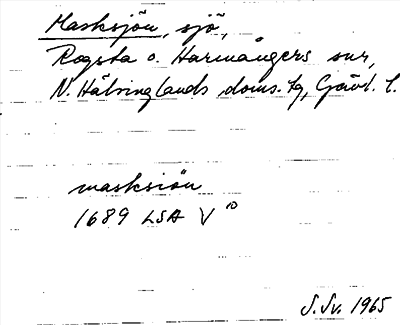 Masksjön, sjö,
Rogsta o. Harmångers snr,
N. Hälsinglands doms. tg, Gävl. l.
masksiön
1689 LSA V 10
S.Sv. 1965